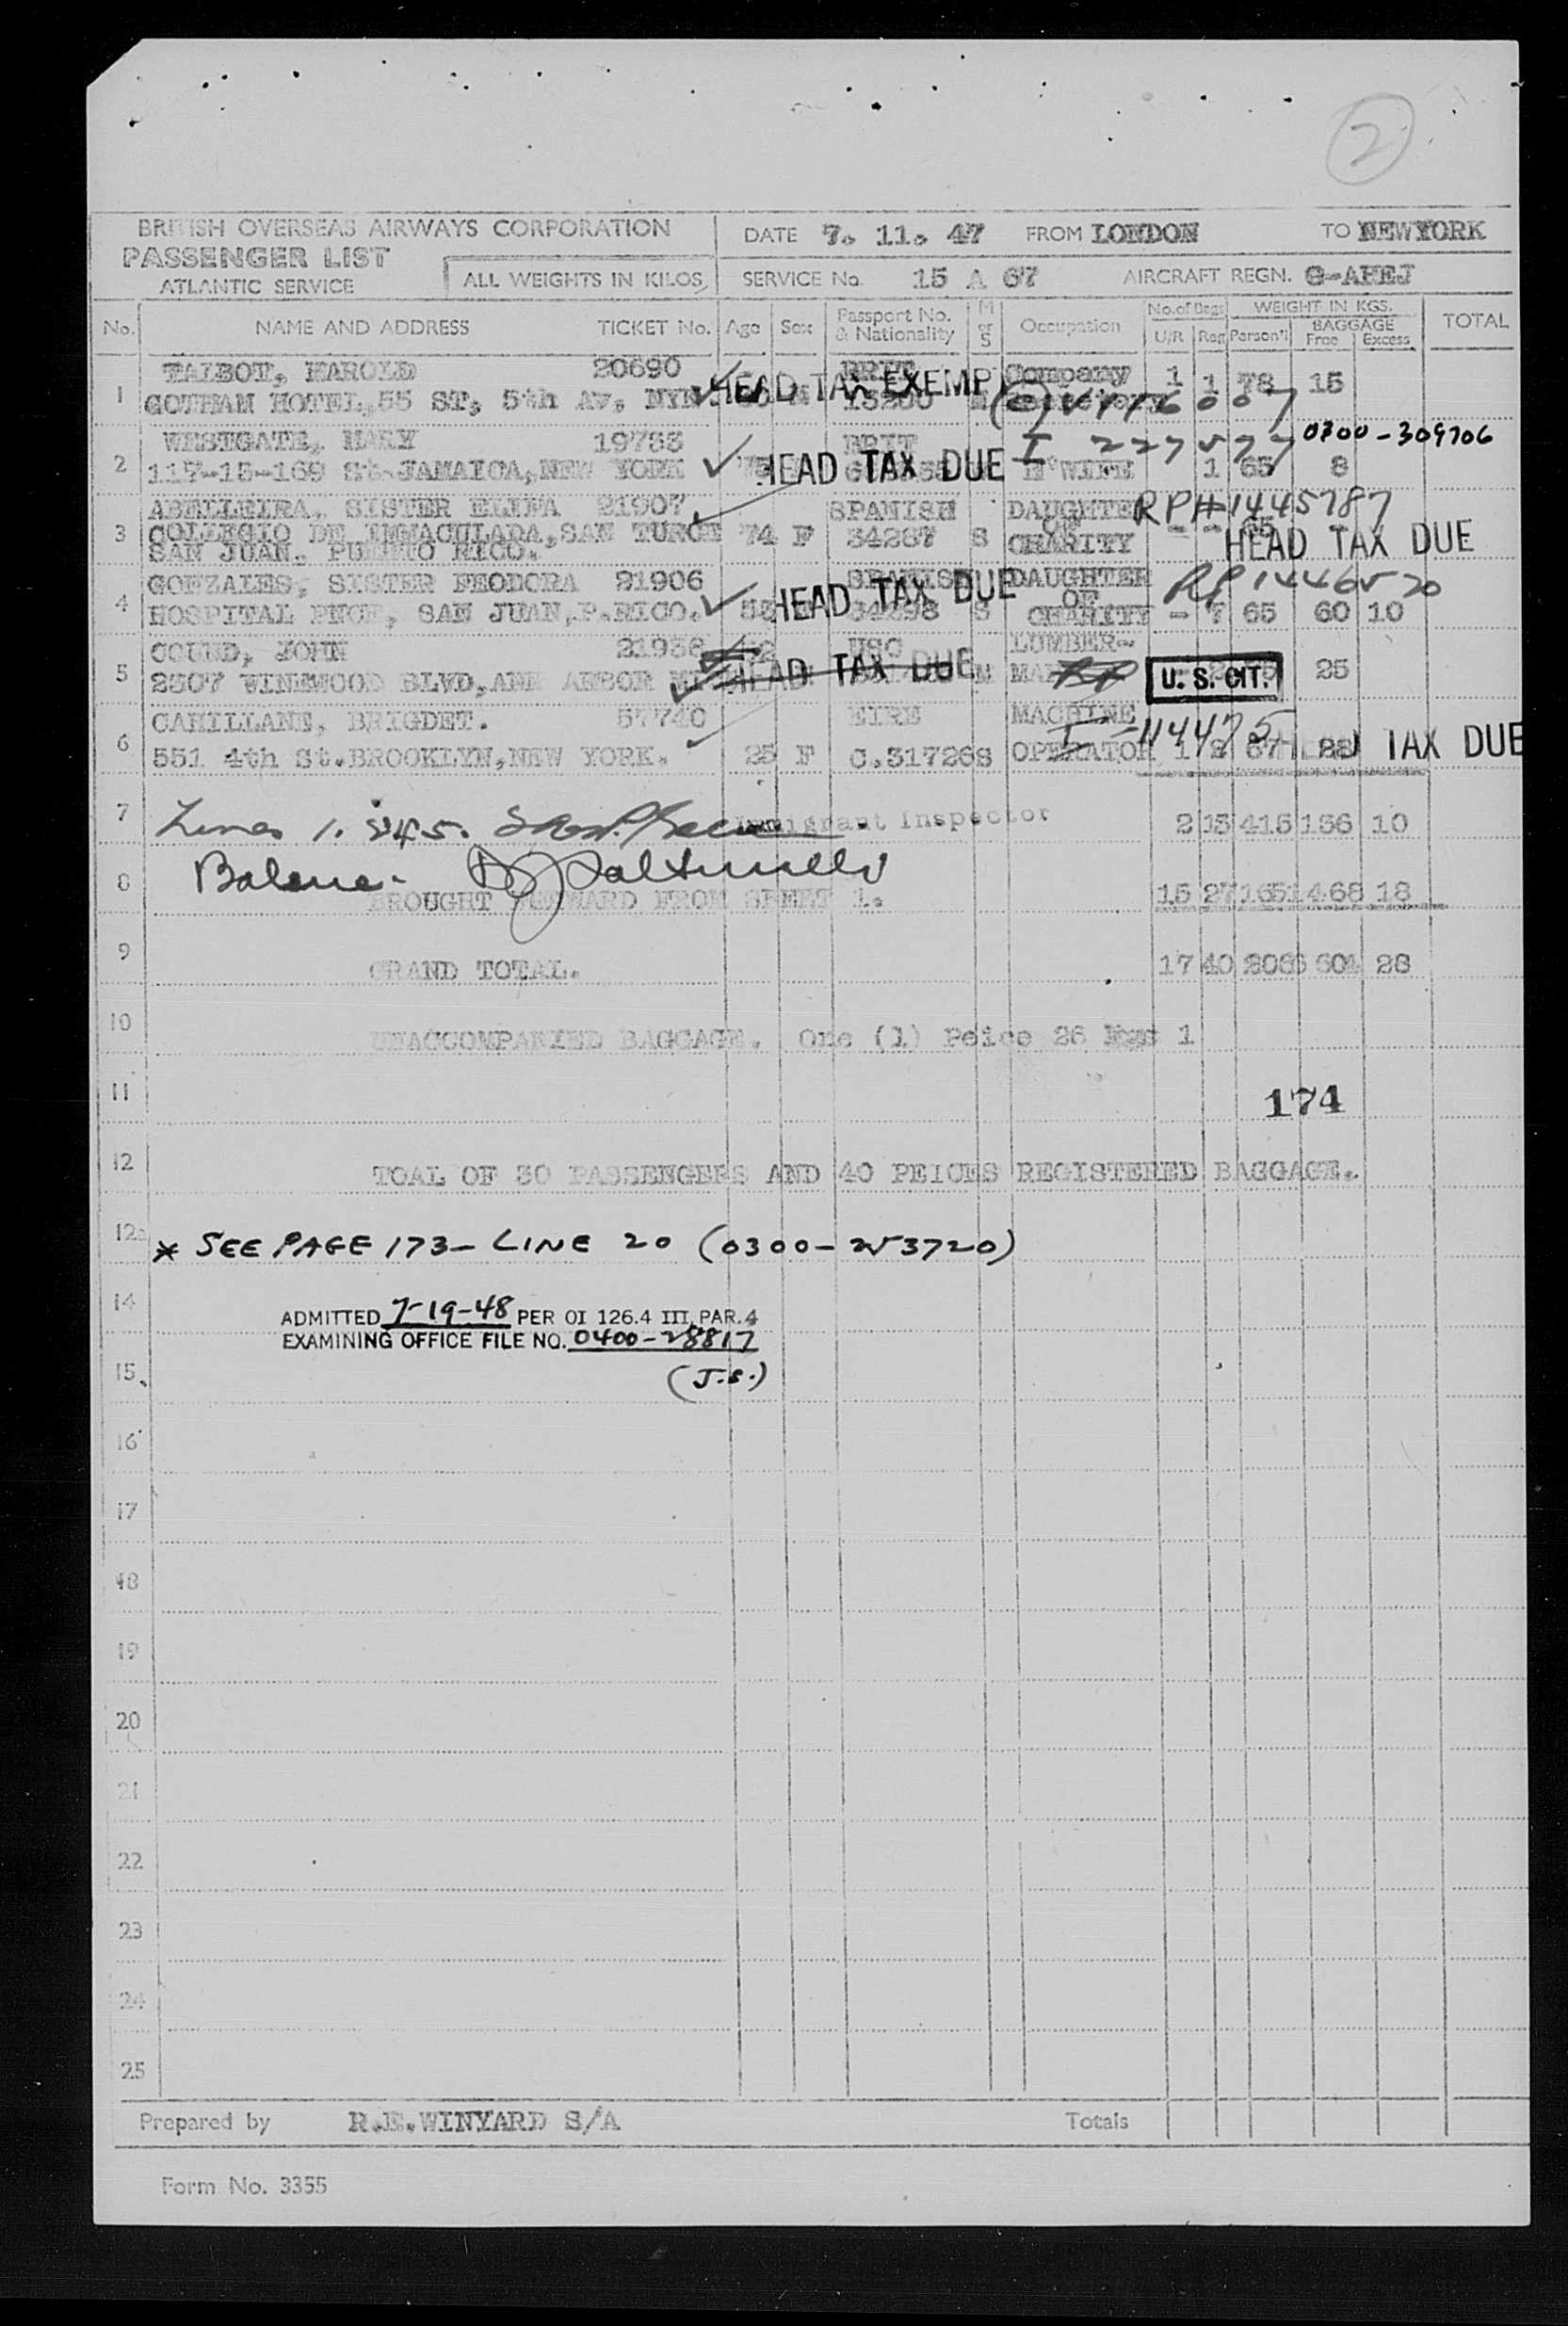 2
BRITISH OVERSEAS AIRWAYS CORPORATION
PASSENGER LIST
ATLANTIC SERVICE
ALL WEIGHTS IN KILOS
DATE 7. 11. 47 FROM LONDON TO NEWYORK
SERVICE No. 15 A 67 AIRCRAFT REGN. G-AHEJ
No. NAME AND ADDRESS TICKET No. Age Sex Passport No. & Nationality M or S Occupation No. of Bags U/R Reg WEIGHT IN KGS. Person'l BAGGAGE Free Excess TOTAL
1 TALBOT, HAROLD 20690 BRIT Company 1 1 78 15
GOTHAM HOTEL, 55 ST, 5th Av, NYK. HEAD TAX EXEMPT
2 WESTGATE, MARY 19783 BRIT I 227577 0300-309706
117-15-169 St. JAMAICA, NEW YORK HEAD TAX DUE H'WIFE 1 65 8
3 ABELLEIRA, SISTER ELISA 21907 SPANISH DAUGHTER RP#1445787
COLLEGIO DE IMMACULADA, SAN TURCE 74 F 34287 S OF CHARITY - - 65 HEAD TAX DUE
SAN JUAN. PUERTO RICO.
4 GONZALES, SISTER FEODORA 21906 SPANISH DAUGHTER RP 1446520
HOSPITAL PROF, SAN JUAN, P.RICO. HEAD TAX DUE 34298 S OF CHARITY - 7 65 60 10
5 GOULD, JOHN 21936 42 USC LUMBER-
2307 WINEWOOD BLVD, ANN ARBOR HEAD TAX DUE M U. S. CIT. 25
6 CAHILLANE, BRIGDET. 57740 EIRE MACHINE I-114475
551 4th St. BROOKLYN, NEW YORK. 25 F C.31726 S OPERATOR 1 2 67 28 HEAD TAX DUE
7 Lines 1. 2 4 5. Immigrant Inspector 2 13 415 136 10
8 Balance.
BROUGHT FORWARD FROM SHEET 1. 15 27 1651 468 18
9 GRAND TOTAL. 17 40 2066 604 28
10 UNACCOMPANIED BAGGAGE. One (1) Peice 26 Kgs 1
11 174
12 TOAL OF 30 PASSENGERS AND 40 PEICES REGISTERED BAGGAGE.
12a * SEE PAGE 173- LINE 20 (0300-253720)
14 ADMITTED 7-19-48 PER OI 126.4 III, PAR. 4
EXAMINING OFFICE FILE NO. 0400-28817
15 (J.S.)
16
17
18
19
20
21
22
23
24
25
Prepared by R.E.WINYARD S/A Totals
Form No. 3355